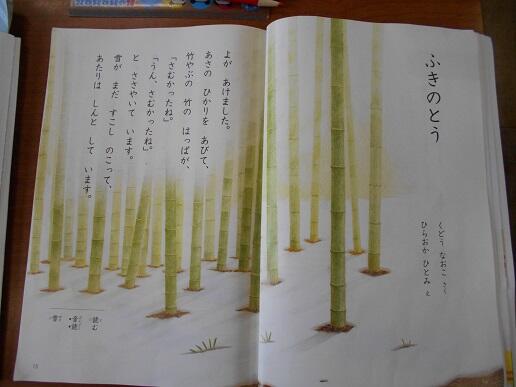 ふきのとう
くどう なおこ さく
ひらおか ひとみ え
よが あけました。
あさの ひかりを あびて、
竹やぶの 竹の はっぱが、
「さむかったね。」
「うん、さむかったね。」
と ささやいて います。
雪が まだ すこし のこって、
あたりは しんと して います。
読む
音読
雪